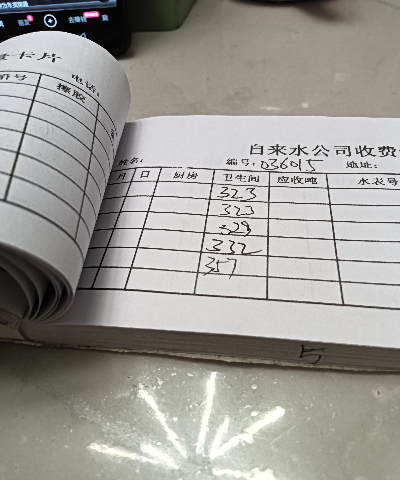 卡片
号 电话:
擦胶
自来水公司收费
姓名: 编号: 036015 地址:
月 日 厨房 卫生间 应收吨 水表号
323
323
329
332
357
5